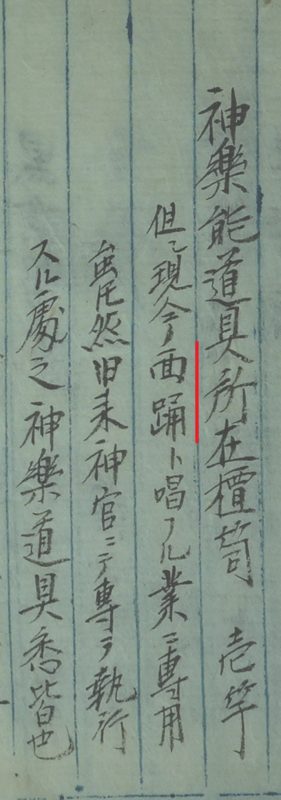 神樂能道具所在櫃笥　壱竿
但シ現今ノ面踊ト唱フル業ニ専用
雖然旧来神官ニテ専ラ執行
スル處之神樂道具悉皆也